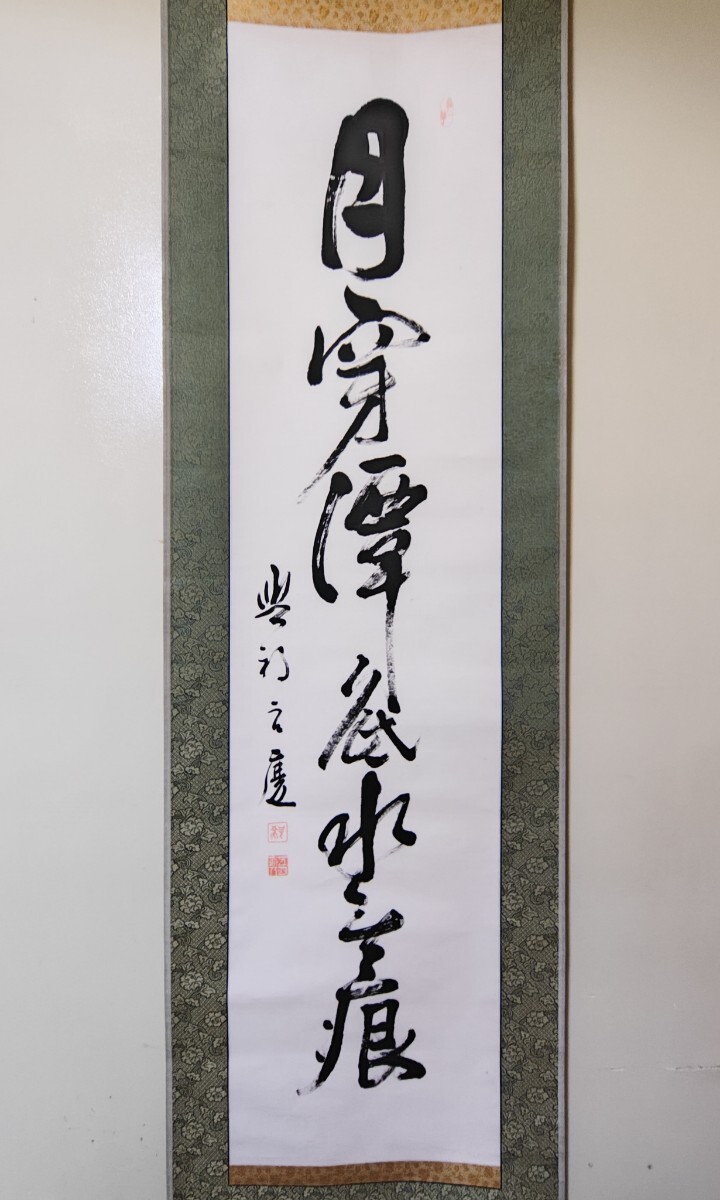 月穿潭底水無痕